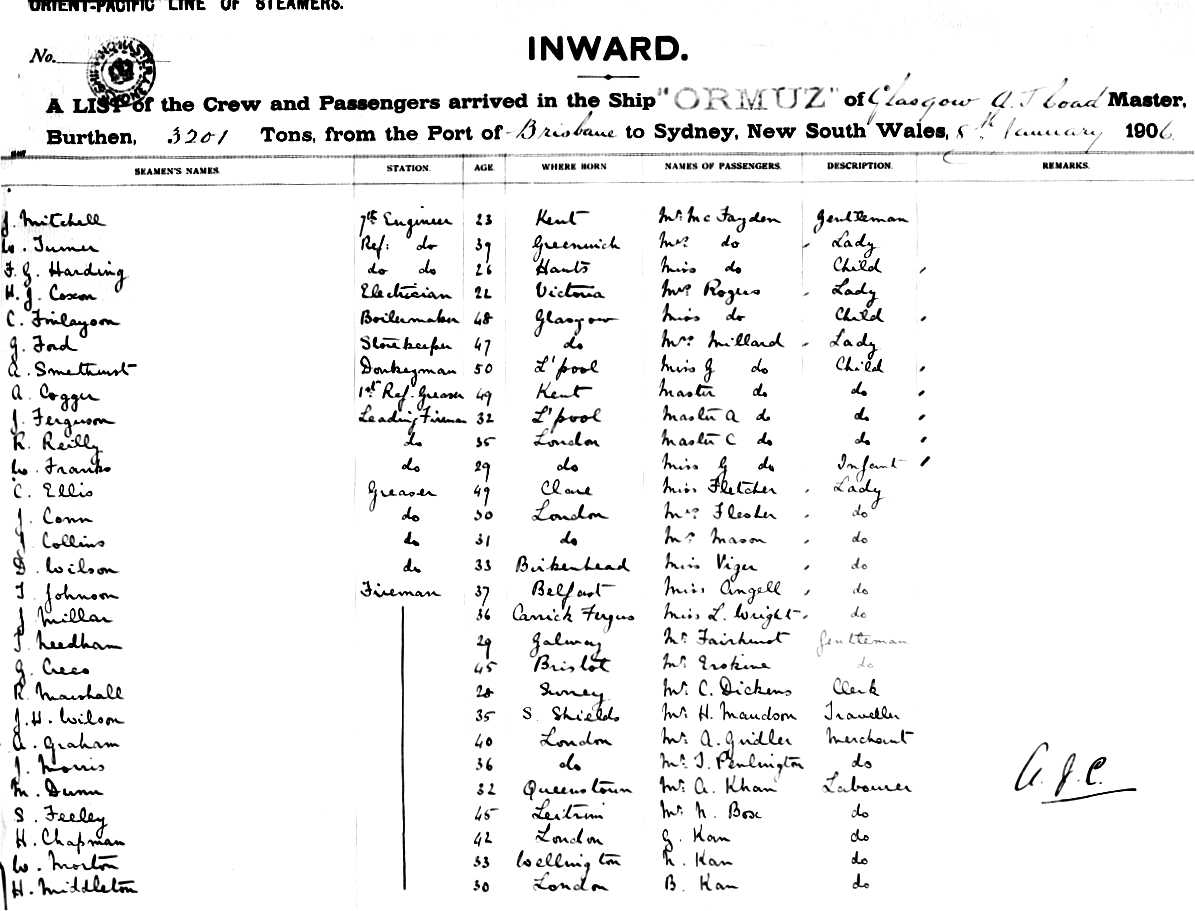 ORIENT-PACIFIC LINE OF STEAMERS.
INWARD.
No.
A LIST of the Crew and Passengers arrived in the Ship "ORMUZ" of Glasgow A. J. Coad Master,
Burthen, 3201 Tons, from the Port of Brisbane to Sydney, New South Wales, 8th January 1906
SEAMEN'S NAMES. STATION. AGE WHERE BORN NAMES OF PASSENGERS. DESCRIPTION. REMARKS.
J. Mitchell 7th Engineer 23 Kent Mr. McFayden Gentleman
W. Turner Ref: do 39 Greenwich Mrs do Lady
F. G. Harding do do 26 Hants Miss do Child
H. J. Coxon Electrician 22 Victoria Mrs Rogers Lady
C. Finlayson Boilermaker 48 Glasgow Miss do Child
G. Ford Storekeeper 47 do Mrs Millard Lady
A. Smethurst Donkeyman 50 L'pool Miss G do Child
A. Cogger 1st Ref. Greaser 49 Kent Master do do
J. Ferguson Leading Fireman 32 L'pool Master A do do
R. Reilly do 35 London Master C do do
W. Franks do 29 do Miss G do Infant
C. Ellis Greaser 49 Clare Miss Fletcher Lady
J. Conn do 30 London Mrs Flesher do
J Collins do 31 do Mrs Mason do
D. Wilson do 33 Birkenhead Miss Viger do
T. Johnson Fireman 37 Belfast Miss Angell do
J Millar 36 Carrick Fergus Miss L. Wright do
T. Needham 29 Galway Mr. Fairhurst Gentleman
G. Crees 45 Bristol Mr. Erskine do
R. Marshall 28 Surrey Mr. C. Dickens Clerk
J. H. Wilson 35 S. Shields Mr. H. Maudson Traveller
A. Graham 40 London Mr. A. Gridler Merchant
J. Morris 36 do Mr. T. Penlington do
M. Dunn 32 Queenstown Mr. A. Khan Labourer
A. J. C.
S. Feeley 45 Leitrim Mr. N. Box do
H. Chapman 42 London G. Kan do
W. Morton 33 Wellington N. Kan do
H. Middleton 30 London B. Kan do